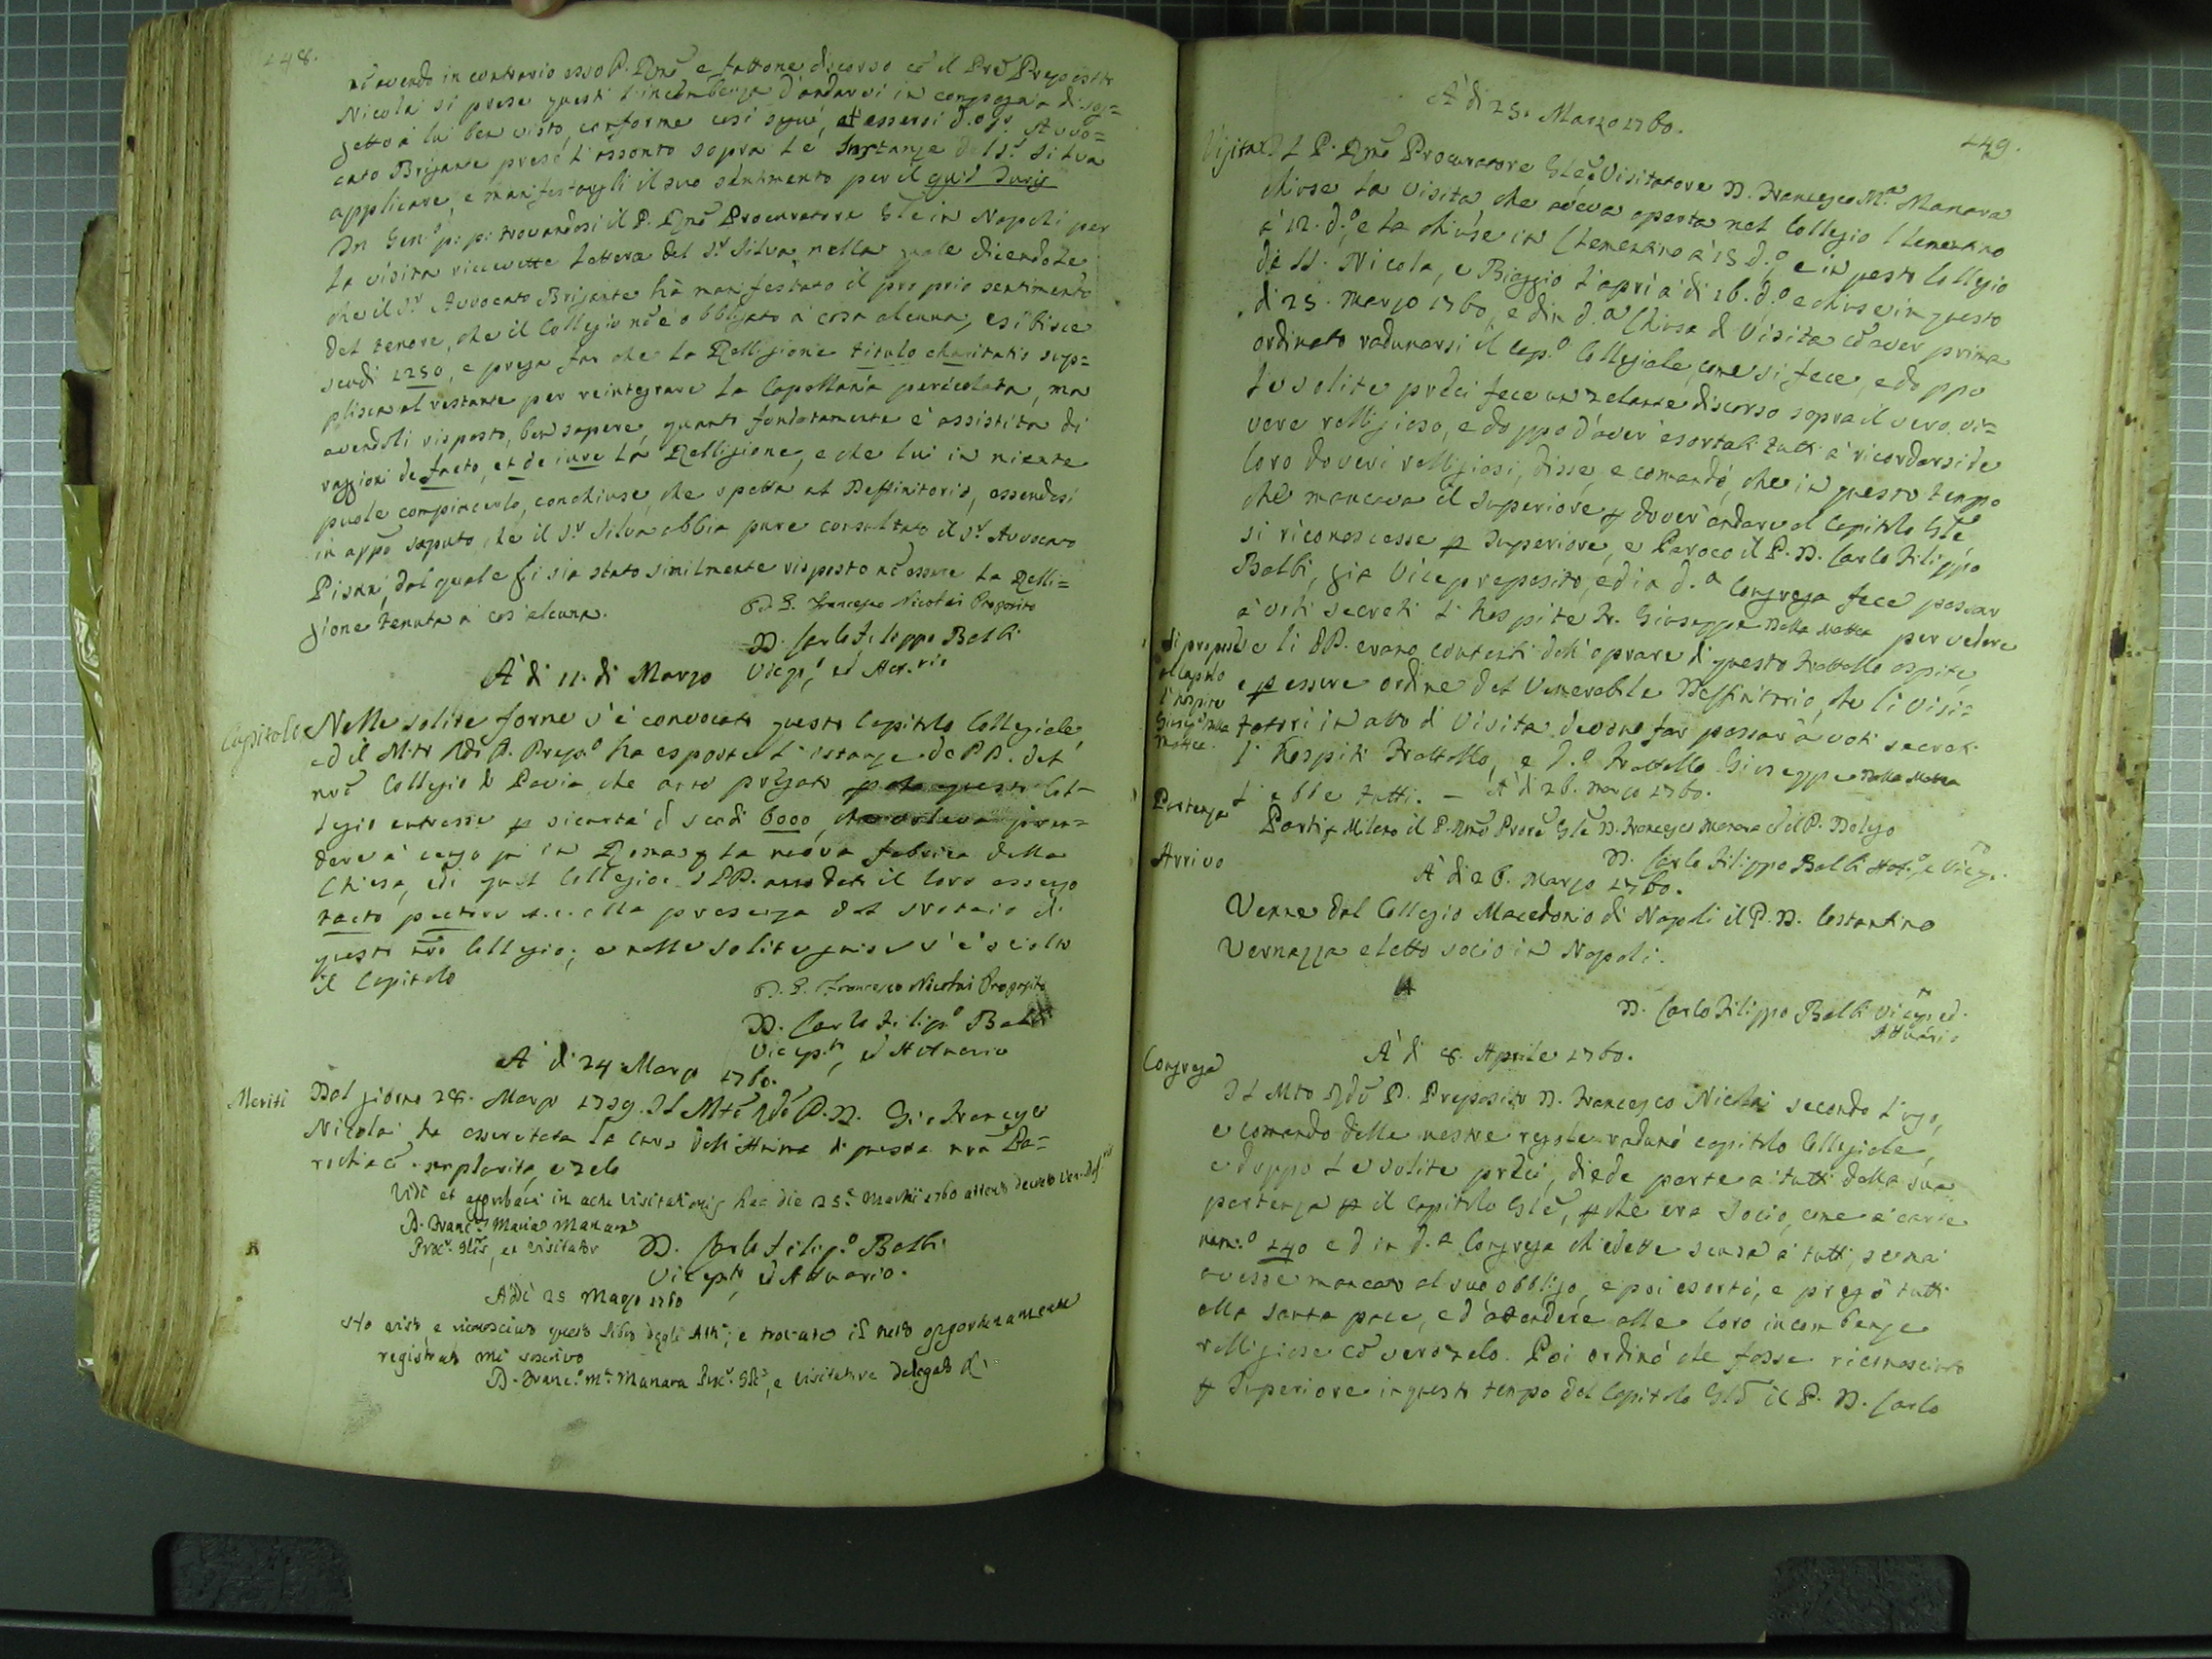 248.
nõ avendo in contrario esso P. Rmõ e fattone discorso cõ il Prẽ Preposito
Nicolai si prese questi l'incumbenza d'andarvi in compagnia di sog=
getto à lui ben visto, conforme così seguì, et essersi d.o S.r Avvo=
cato Brigante preso l'assonto sopra le Instanze del S.r Silva
applicare, e manifestargli il suo sentimento per il quid Juris
In Gen.o p: p: trovandosi il P. Rmõ Procuratore Glẽ in Napoli per
la visita ricevette lettera del S.r Silva, nella quale dicendole
che il S.r Avvocato Brigante hà manifestato il proprio sentimento
del tenore, che il Collegio nõ è obbligato à cosa alcuna, esibisce
scudi 1250, e prega, far che la Relligione titulo charitatis sup=
plisca al restante per reintegrare la Capellania pericolata, ma
avendoli risposto, ben sapere, quanto fondatamente è assistita di
raggioni de facto, et de iure la Relligione, e che lui in niente
puole compiacerlo, conchiuse, che spetta al Deffinitorio, essendosi
in appõ saputo, che il S.r Silva abbia pure consultato il S.r Avvocato
Pisani, dal quale li sia stato similmente risposto nõ essere la Relli=
gione tenuta à cos'alcuna.
D. G. Francesco Nicolai Preposito
D. Carlo Filippo Balbi
Vicep.to, ed Att.rio
A dì 11. di Marzo
Capitolo
Nelle solite forme s'è convocato questo Capitolo Collegiale,
ed il M.to Rdõ P. Prep.o ha esposto l'istanze de PP. del
nrõ Collegio di Pavia che anno pregato questo Col=
legio entrasse ꝑ sicurtà di scudi 6000, pren=
dere à censo in Roma ꝑ la nuova fabrica della
Chiesa, di quel Collegio. I PP. anno dato il loro assenso
tacto pectore alla presenza del Notaio di
questo nrõ Collegio; e nelle solite guise s'è sciolto
il Capitolo
D. G. Francesco Nicolai Preposito
D. Carlo Filip.o Balbi
Vicep.to, ed Attuario
A dì 24 Marzo 1760.
Meriti
Dal giorno 28. Marzo 1759. Il M.to Rdõ P. D. Gio Francesco
Nicolai ha essercitata la cura dell'Anime di questa nrã Pa=
rochia cõ esemplarità, e zelo
Vidi et approbavi in actu Visitationis hac die 25.a Martii 1760 attento decreto Ven. Def.rii
D. Franc.s Maria Manara
Proc.r Glis, et Visitator
D. Carlo Filip.o Balbi
Vicep.to, ed Attuario.
Adì 25 Marzo 1760
Hò visto, e riconosciuto questo libro degli Atti; e trovato il tutto opportunamente
registrato mi soscrivo
D. Franc.o M.a Manara Proc.r Glẽ, e Visitatore Delegato
249.
A dì 25. Marzo 1760.
Visita
Il P. Rmõ Procuratore Glẽ, e Visitatore D. Francesco M.a Manara
chiuse la Visita che aveva aperta nel Collegio Clementino
à 12. d.o, e la chiuse in Clementino à 15 d.o, e in questo Collegio
de SS. Nicola, e Biaggio l'aprì à dì 16. d.o, e chiuse in questo
dì 25. Marzo 1760, ed in d.a Chiusa di Visita cõ aver prima
ordinato radunarsi il Cap.o Collegiale, come si fece, e doppo
le solite prẽci fece un zelante discorso sopra il vero vi=
vere relligioso, e doppo d'aver esortati tutti à ricordarsi de
loro doveri relligiosi, disse, e comandò, che in questo tempo
che mancava il Superiore ꝑ dover andare al Capitolo Glẽ
si riconoscesse ꝑ Superiore, e Paroco il P. D. Carlo Filippo
Balbi, già Vicepreposito, ed in d.a Congrega fece passar
à voti secreti l'hospite Fr. Giuseppe Della Mattea per vedere
Si propone
al Capitolo
l'hospite
Gius.e Della
Mattea.
se li PP. erano contenti dell'oprare di questo Fratello ospite,
e ꝑ essere ordine del Venerabile Deffinitorio, che li Visi=
tatori in atto di Visita devono far passar à voti secreti
l'hospiti Fratello, e d.o Fratello Giuseppe Della Mattea
l'ebbe tutti. — A dì 26. Marzo 1760.
Partenza
Partì ꝑ Milano il P. Rmõ Procrẽ Glẽ D. Francesco Manara ed il P.
D. Carlo Filippo Balbi Att.o, e Vicep.to
Arrivo
A dì 26. Marzo 1760.
Venne dal Collegio Macedonio di Napoli il P. D. Costantino
Vernazza eletto socio in Napoli.
D. Carlo Filippo Balbi Vicep.to ed
Attuario
A dì 8. Aprile 1760.
Congrega
Il M.to Rdõ P. Preposito D. Francesco Nicolai secondo l'uso,
e comando delle nostre regole radunò capitolo Collegiale,
e doppo le solite prẽci, diede parte a tutti della sua
partenza ꝑ il Capitolo Glẽ, ꝑchè era Socio, come à carte
num.o 240 ed in d.a Congrega chiedette scusa à tutti, se mai
avesse mancato al suo obbligo, e poi esortò, e pregò tutti
alla santa pace, ed attendere alle loro incombenze
relligiose cõ vero zelo. Poi ordinò che fosse riconosciuto
ꝑ Superiore in questo tempo del Capitolo Glẽ il P. D. Carlo